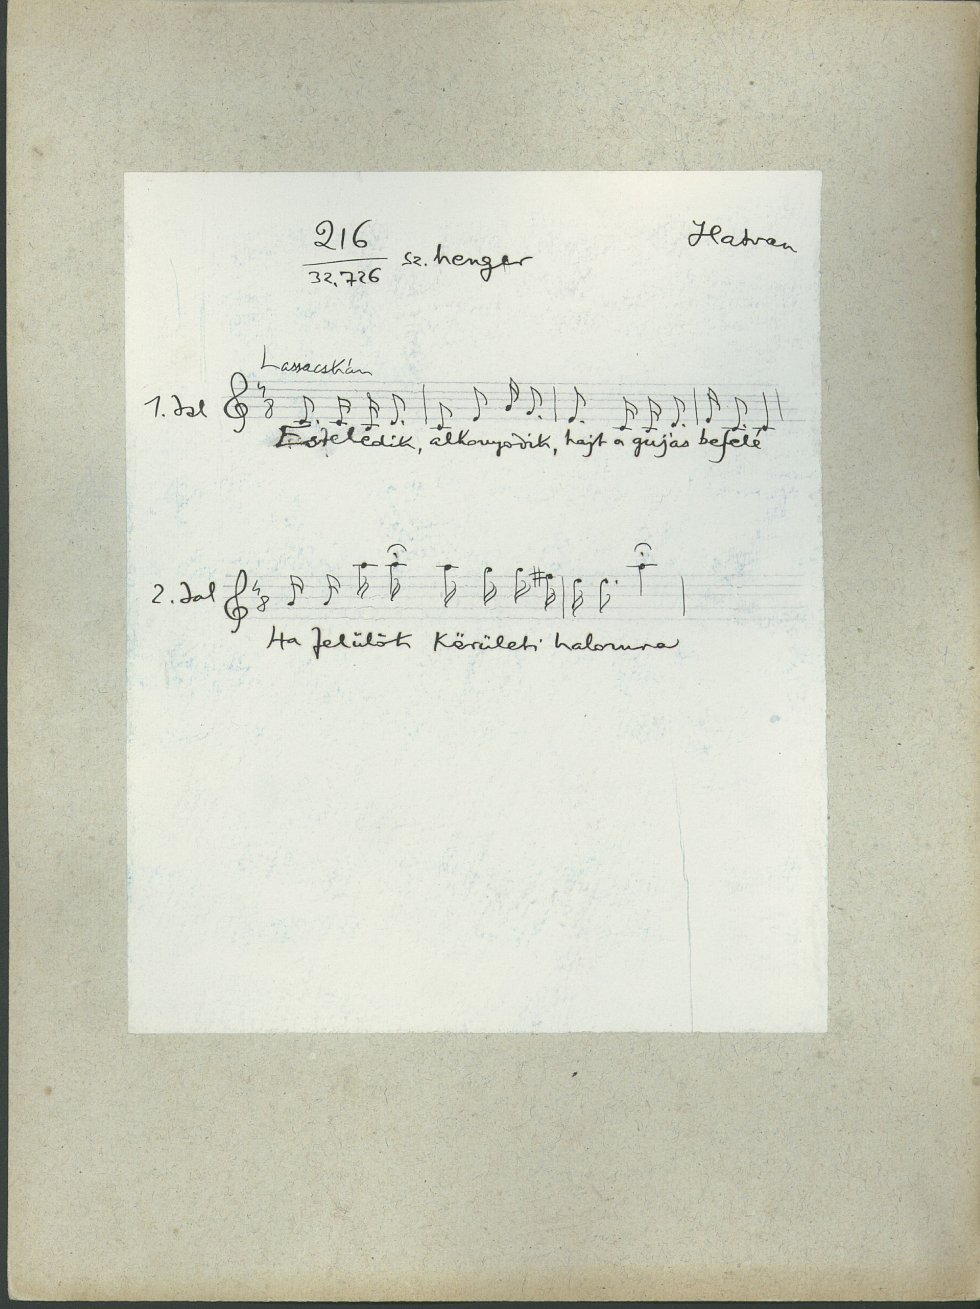 216
32.726 sz. henger
Hatvan
Lassacskán
1. dal
4
8
Esteledik, alkonyodik, hajt a gujás befelé
2. dal
4
8
Ha felülök Kërületi halomra